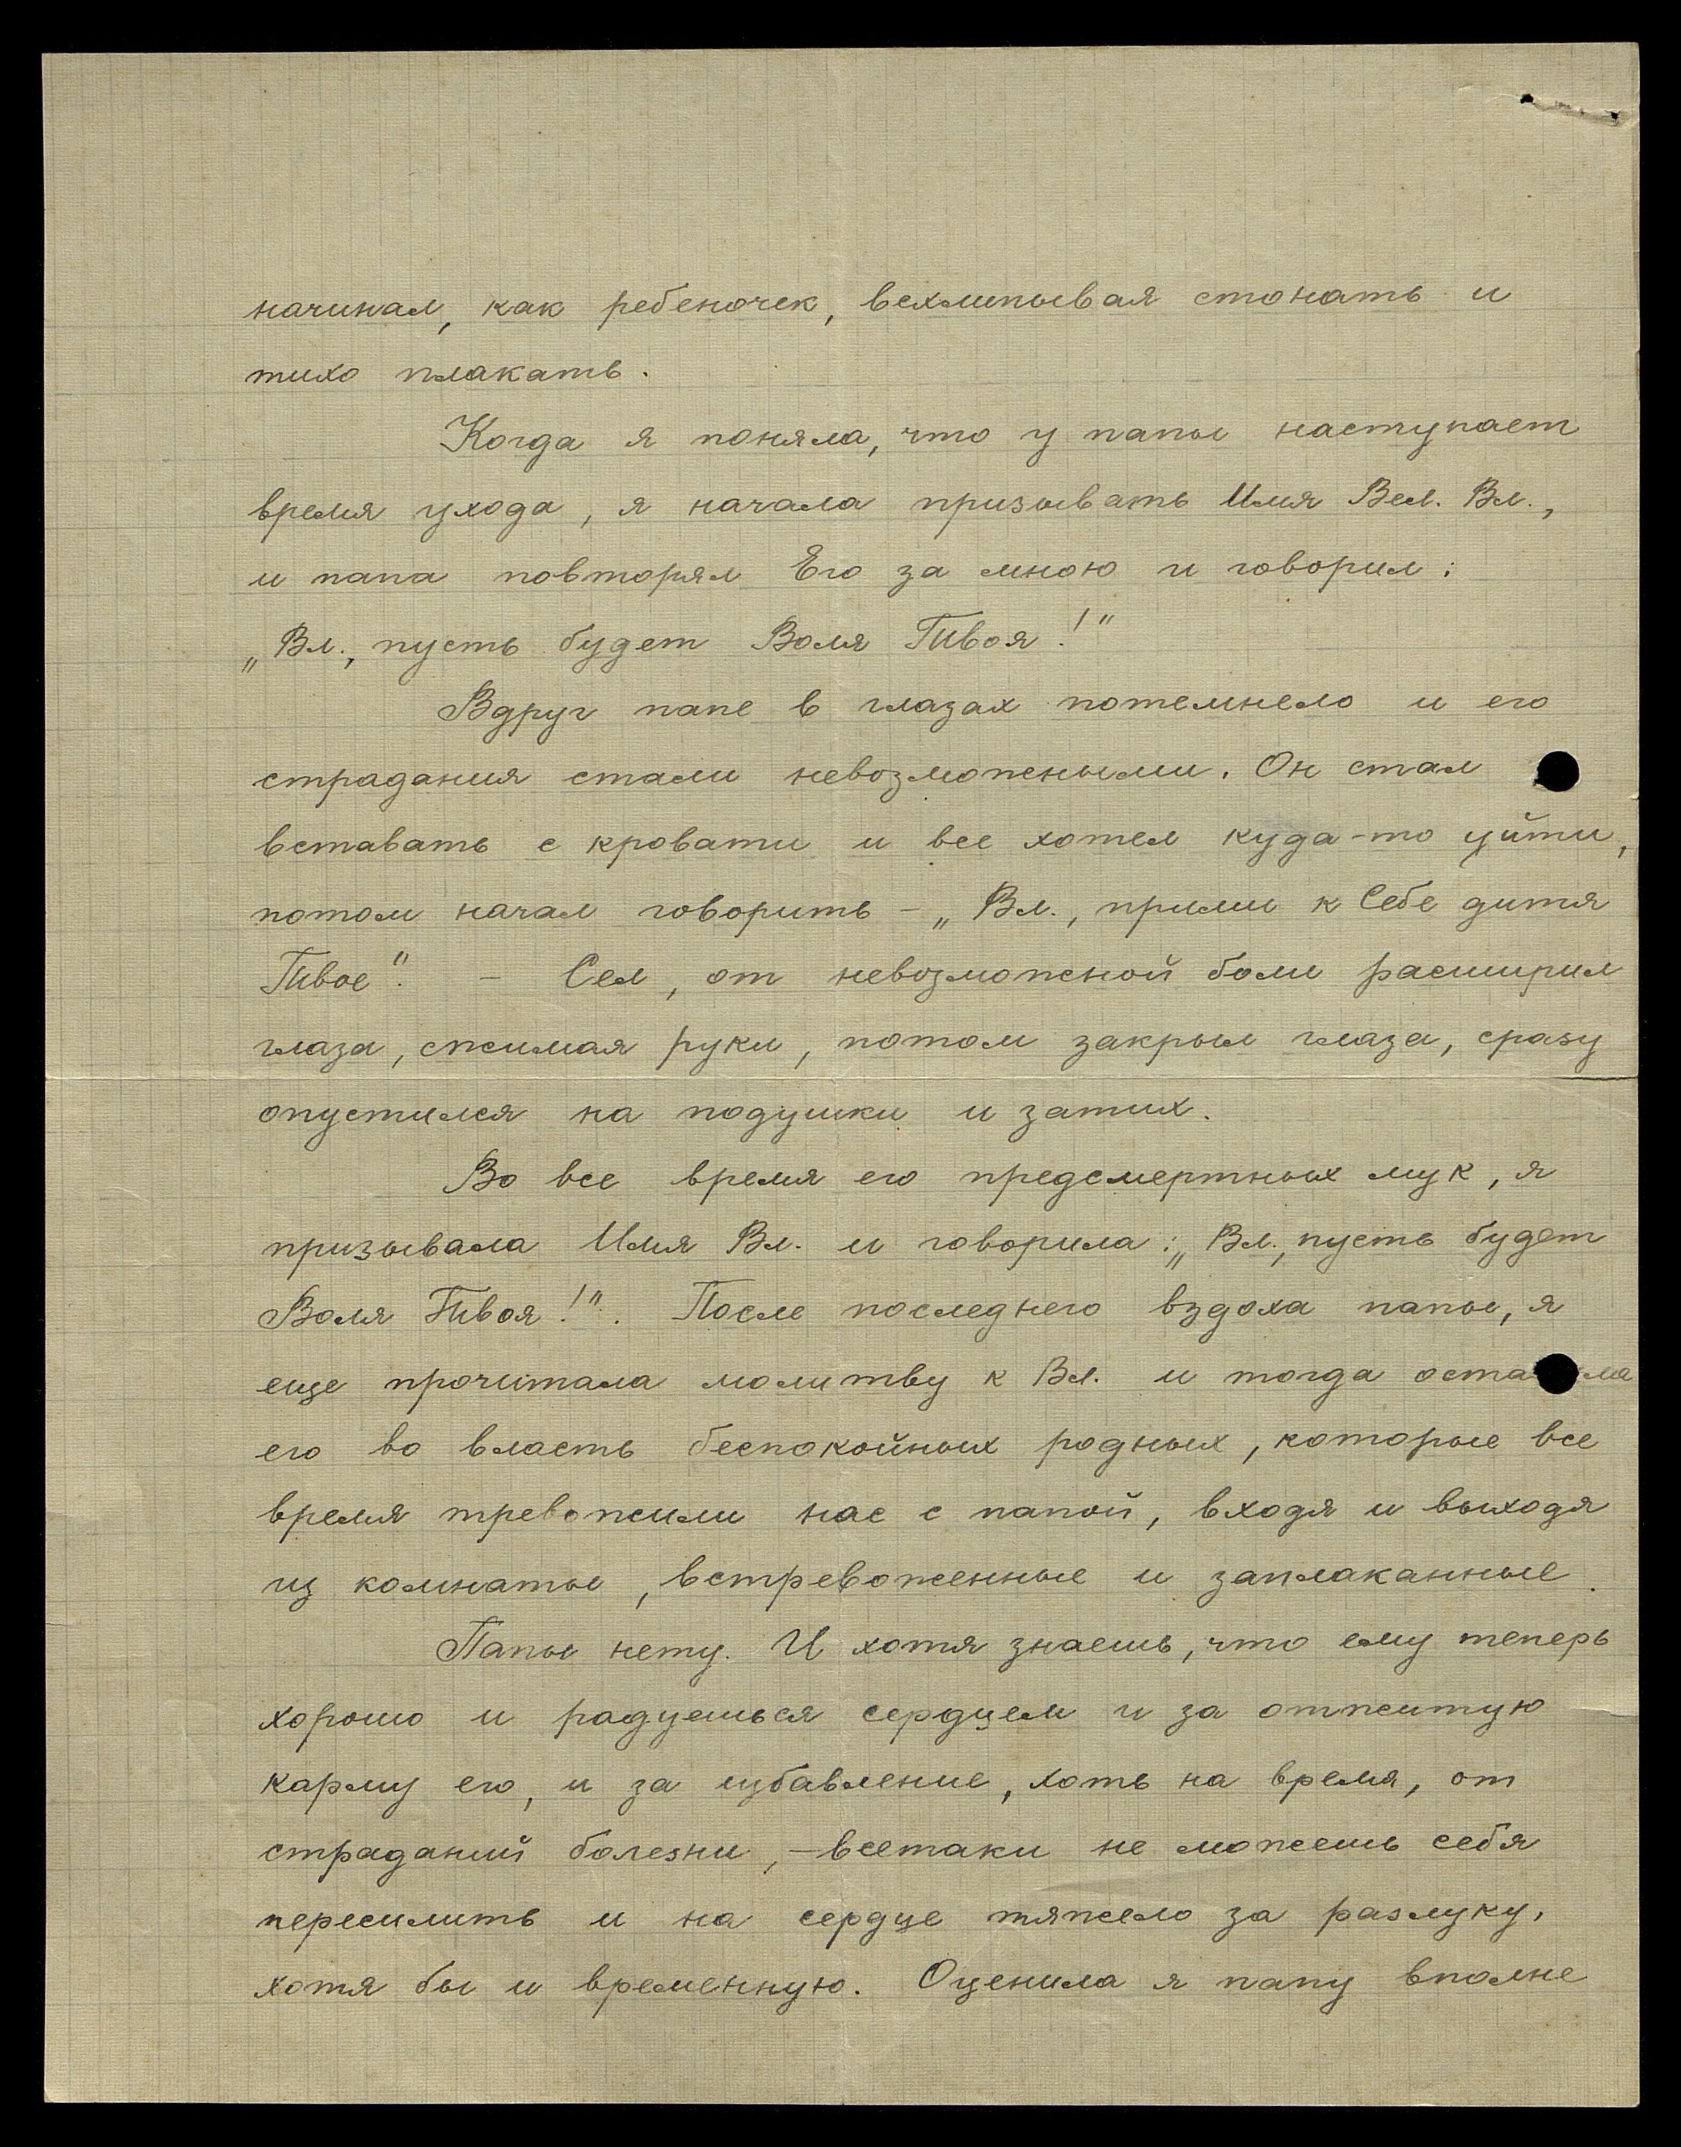 начинал, как ребеночек, всхлипывая стонать и
тихо плакать.
Когда я поняла, что у папы наступает
время ухода, я начала призывать Имя Вел. Вл.,
и папа повторял Его за мною и говорил:
„Вл., пусть будет Воля Твоя!"
Вдруг папе в глазах потемнело и его
страдания стали невозможными. Он стал
вставать с кровати и все хотел куда-то уйти,
потом начал говорить - „Вл., прими к Себе дитя
Твое". - Сел, от невозможной боли расширил
глаза, сжимая руки, потом закрыл глаза, сразу
опустился на подушки и затих.
Во все время его предсмертных мук, я
призывала Имя Вл. и говорила: „Вл., пусть будет
Воля Твоя!". После последнего вздоха папы, я
еще прочитала молитву к Вл. и тогда оста ла
его во власть беспокойных родных, которые все
время тревожили нас с папой, входя и выходя
из комнаты, встревоженные и заплаканные.
Папы нету. И хотя знаешь, что ему теперь
хорошо и радуешься сердцем и за отжитую
карму его, и за избавление, хоть на время, от
страданий болезни, - всетаки не можешь себя
пересилить и на сердце тяжело за разлуку,
хотя бы и временную. Оценила я папу вполне